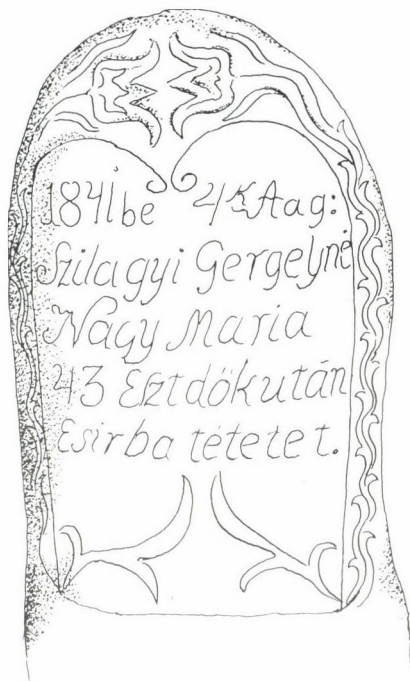 1841be 4K Aag:
Szilagyi Gergelyné
Nagy Maria
43 Esztdőkután
Esirba tétetet.